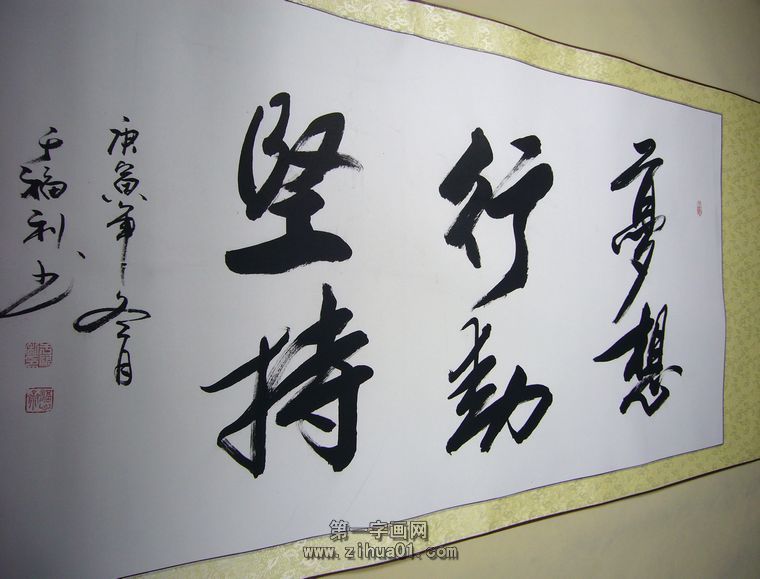 夢想
行動
堅持
庚寅年冬月
于福利书
第一字画网
www.zihua01.com